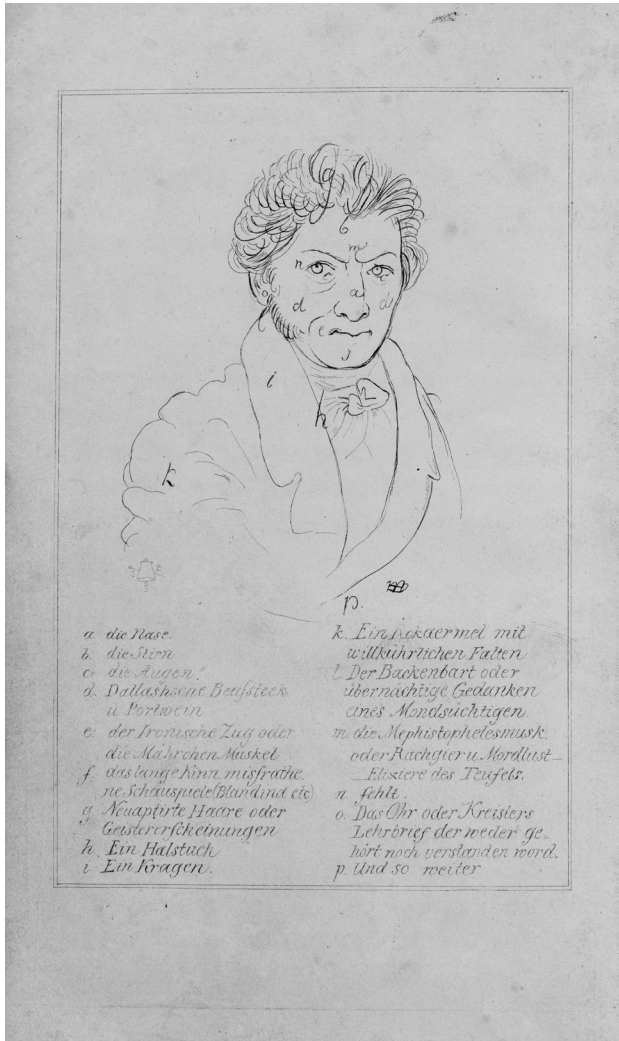 g
b
m
n
c
c
a
d
d
o
l
e
f
i
h
k
p.
a. die Nase.
b. die Stirn
c. die Augen!
d. Dallashsche Beafsteek
u Portwein
e. der Ironische Zug oder
die Mährchen Muskel
f. das lange Kinn misfrathe
ne Schauspiele (Blandina etc)
g. Neuaptirte Haare oder
Geistererscheinungen
h. Ein Halstuch
i Ein Kragen.
k. Ein Rokaermel mit
willkührlichen Falten
l. Der Backenbart oder
übernächtige Gedanken
eines Mondsüchtigen.
m. die Mephistophelesmusk.
oder Rachgier u. Mordlust
Elixiere des Teufels.
n. fehlt.
o. Das Ohr oder Kreislers
Lehrbrief der weder ge-
hört noch verstanden word.
p. Und so weiter